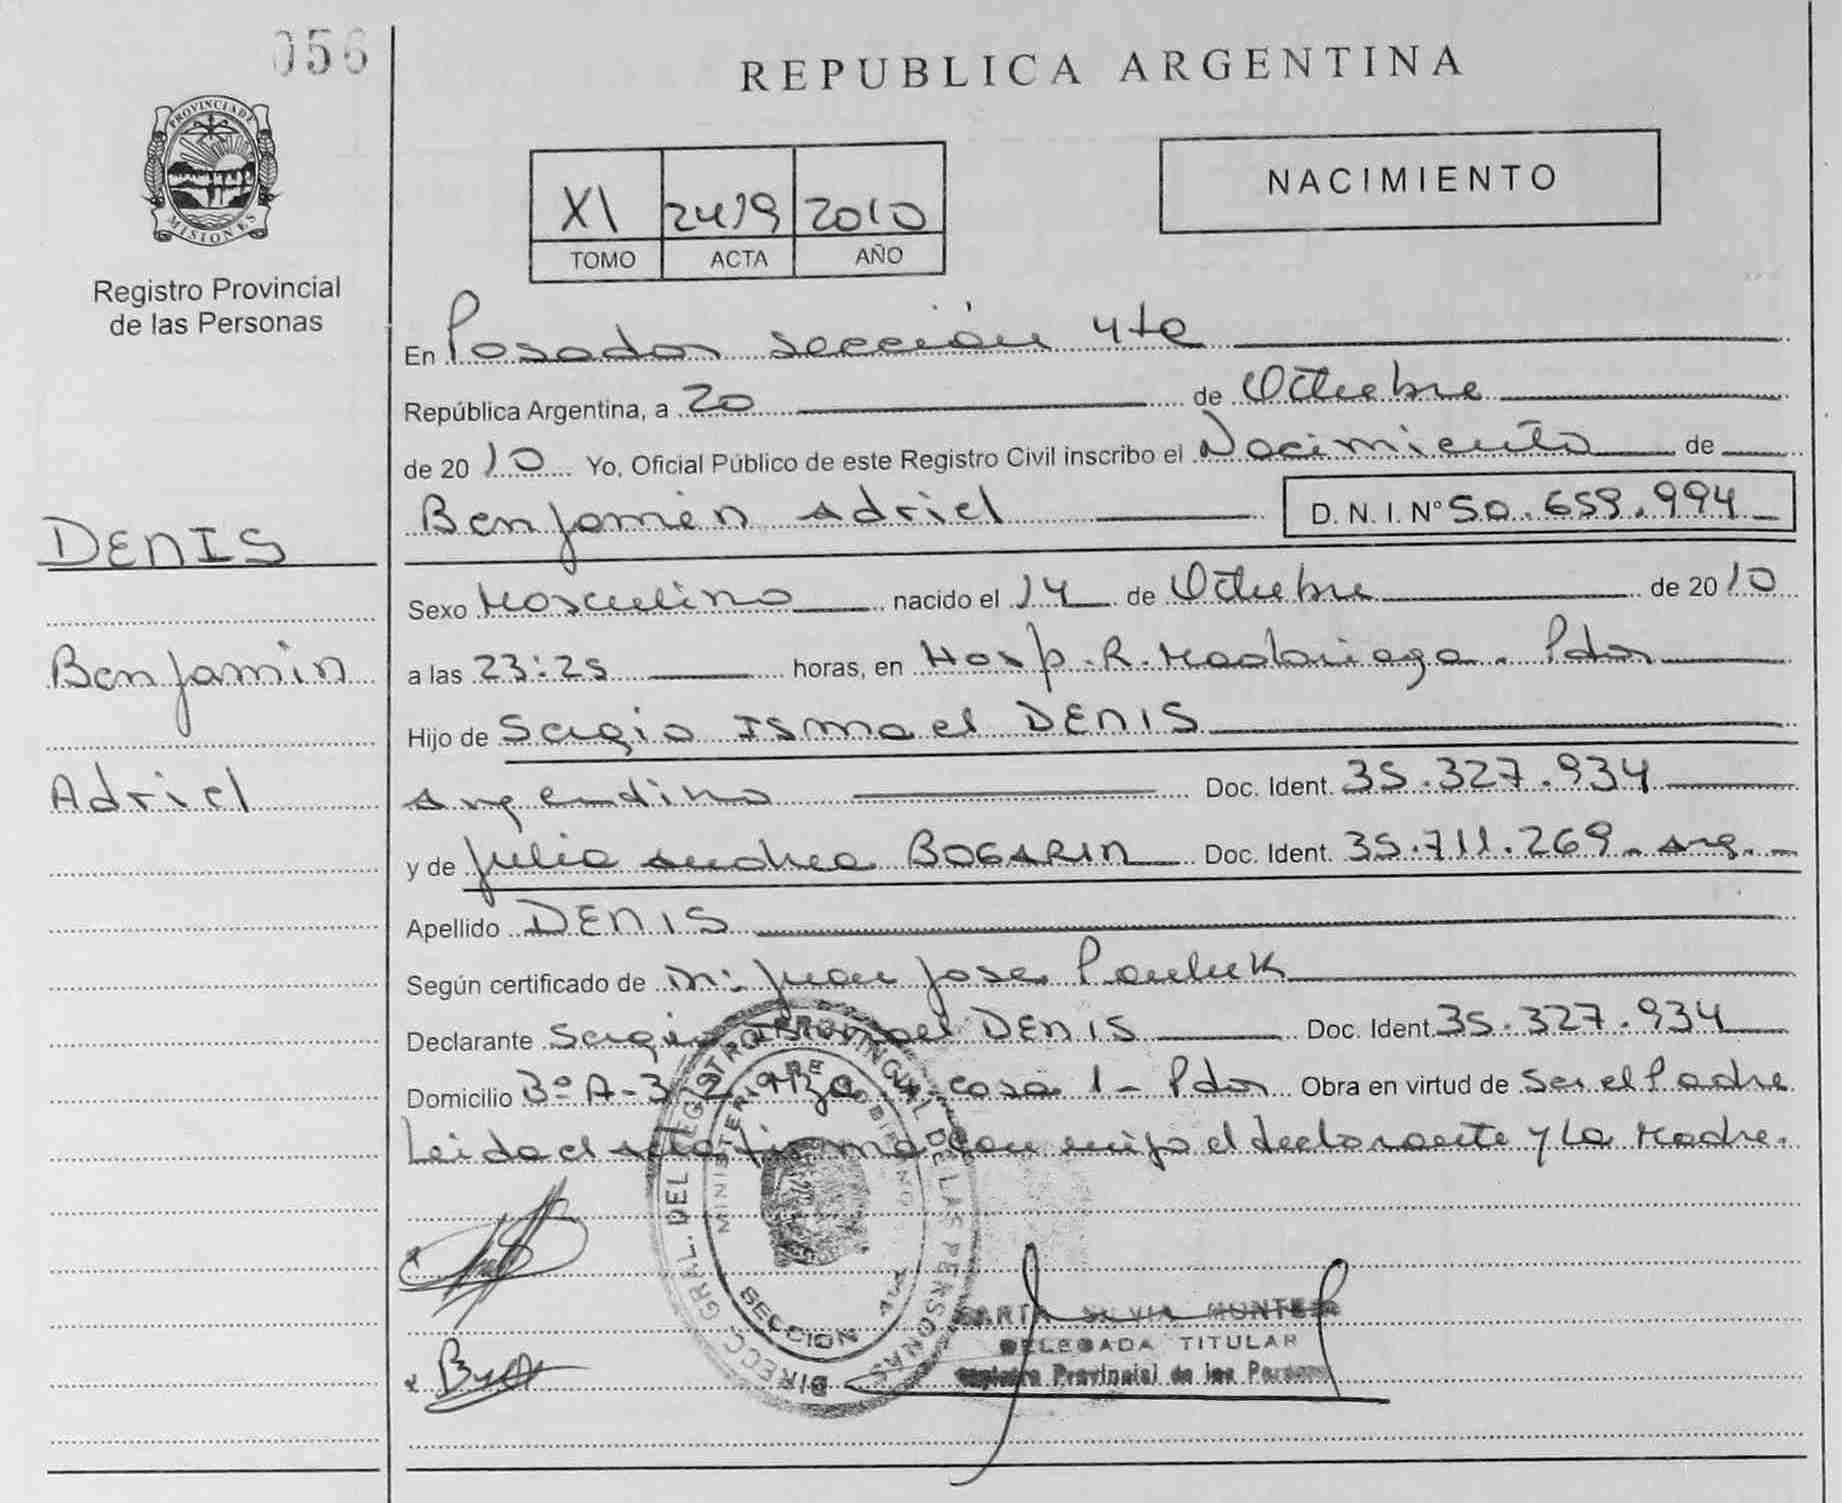 056
PROVINCIA DE
MISIONES
Registro Provincial
de las Personas
REPUBLICA ARGENTINA
NACIMIENTO
XI 2419 2010
TOMO ACTA AÑO
En Posadas sección 4ta
República Argentina, a 20 de Octubre
de 2010 Yo, Oficial Público de este Registro Civil inscribo el Nacimiento de
Benjamin Adriel D.N.I. Nº 50.659.994
DENIS
Sexo Masculino nacido el 14 de Octubre de 2010
Benjamin
a las 23:25 horas, en Hosp. R. Madariaga. Pdas
Hijo de Sergio Ismael DENIS
Adriel
Argentino Doc. Ident. 35.327.934
y de Julia Andrea BOGARIN Doc. Ident. 35.711.269 - Arg. -
Apellido DENIS
Según certificado de Juan Jose
Declarante Sergio Ismael DENIS Doc. Ident. 35.327.934
Domicilio casa 1 - Pdas Obra en virtud de Ser el Padre
Leida el acta firma con migo el declarante y La Madre.
DIRECC. GRAL. DEL REGISTRO PROVINCIAL DE LAS PERSONAS
MINISTERIO DE GOBIERNO
SECCION
SILVIA
DELEGADA TITULAR
Registro Provincial de las Personas